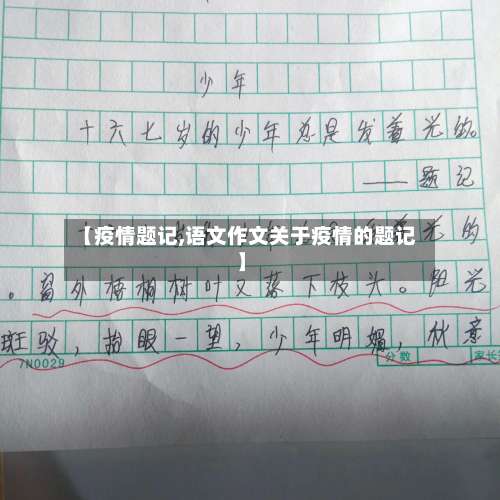 少年
十六七岁的少年总是发着光的。
——题记
【疫情题记,语文作文关于疫情的题记
】
光的
。窗外梧桐树叶又落下枝头。阳光
斑驳，抬眼一望，少年明媚，秋意
N0029
分数
家长